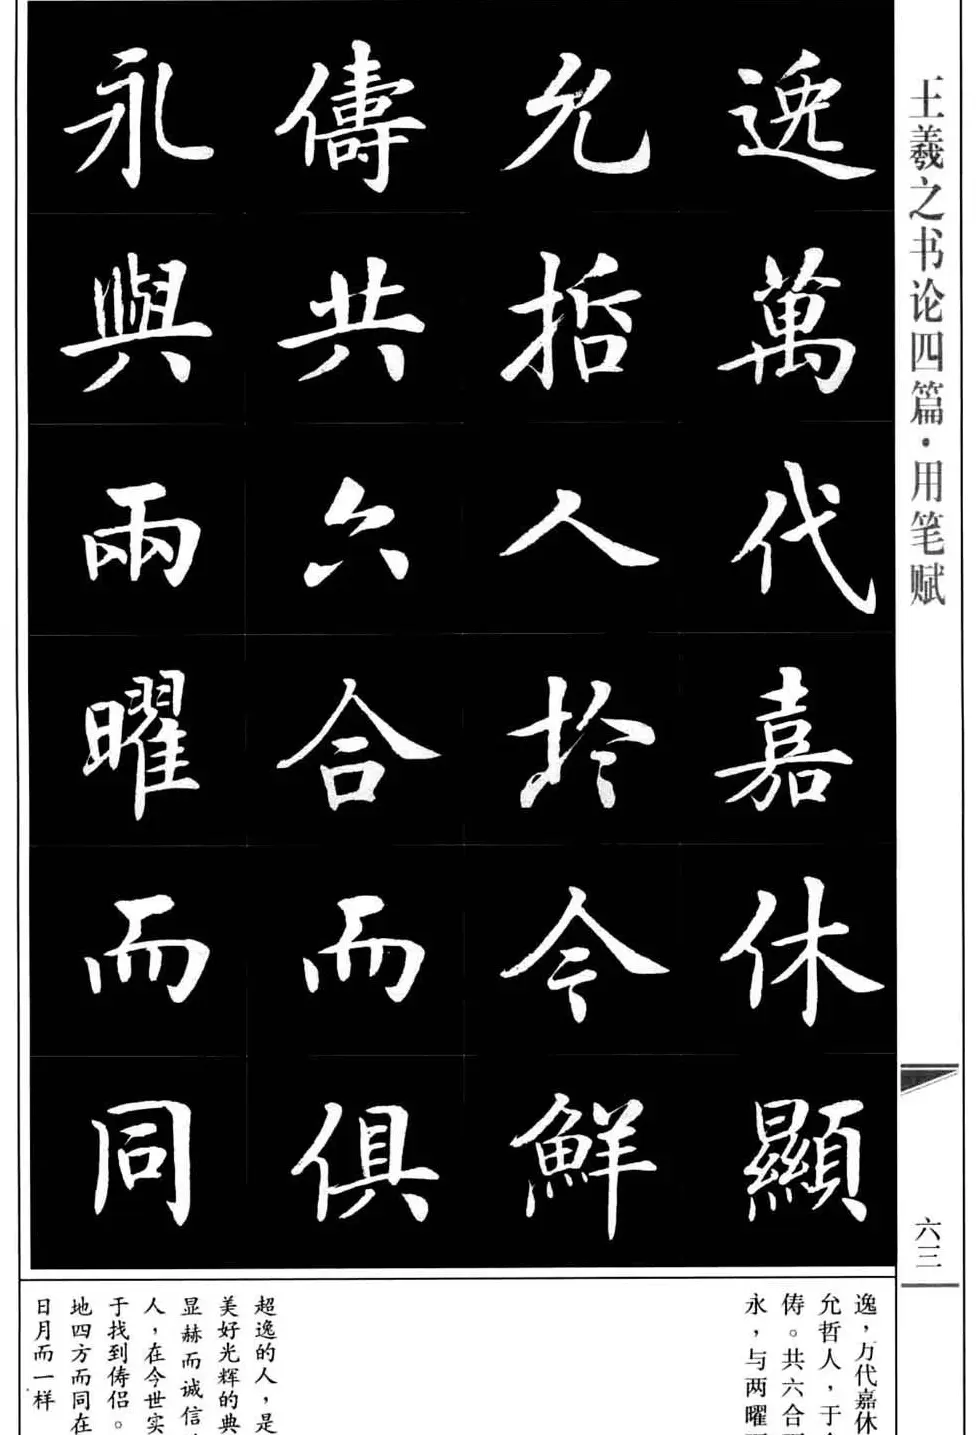 逸萬代嘉休顯
允哲人於今鮮
儔共六合而俱
永與兩曜而同
王羲之书论四篇·用笔赋
六三
逸，万代嘉休
允哲人，于
俦。共六合
永，与两曜
超逸的人，是
美好光辉的典
显赫而诚信
人，在今世实
于找到俦侣。
地四方而同在
日月而一样